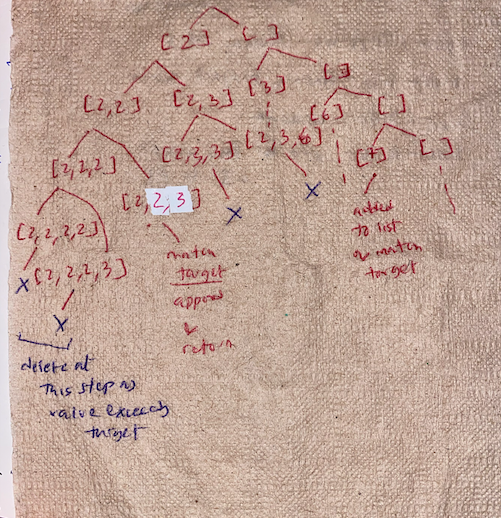 [2] [ ]
[2,2] [2,3] [3] [ ]
[6] [ ]
[2,2,2] [2,3,3] [2,3,6] [7] [ ]
[2,2,3]
[2,2,2,2]
X [2,2,2,3]
X
X
X
match
target
append
&
return
added
to list
as match
target
delete at
this step as
value exceeds
target